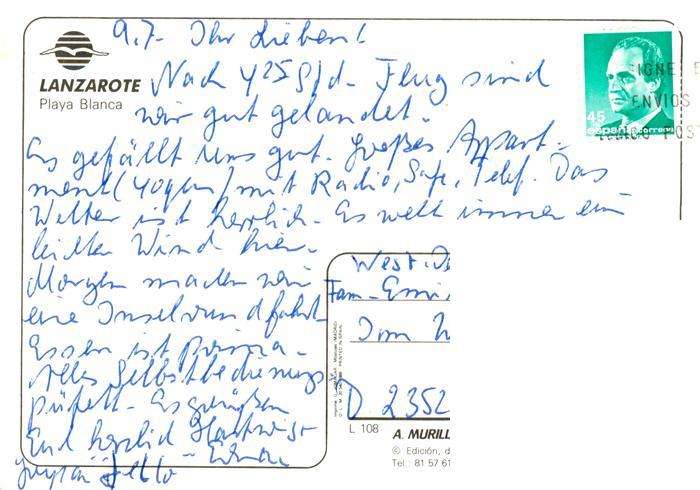 9.7. Ihr Lieben!
LANZAROTE
Playa Blanca
Nach 4 25 Std. Flug sind
wir gut gelandet.
Es gefällt uns gut. Großes Appart-
ment (40qm) mit Radio, Safe, Telef. Das
Wetter ist herrlich. Es weht immer ein
leichter Wind hier.
Morgen machen wir
eine Inselrundfahrt
Essen ist prima.
Alles Selbstbedienungs
püfett. Es grüßen
Euch herzlich
45
españa correos
ENVIOS
West-De
Fam. Emi
D 2352
L 108
A. MURILL
© Edición, d
Tel.: 81 57 61